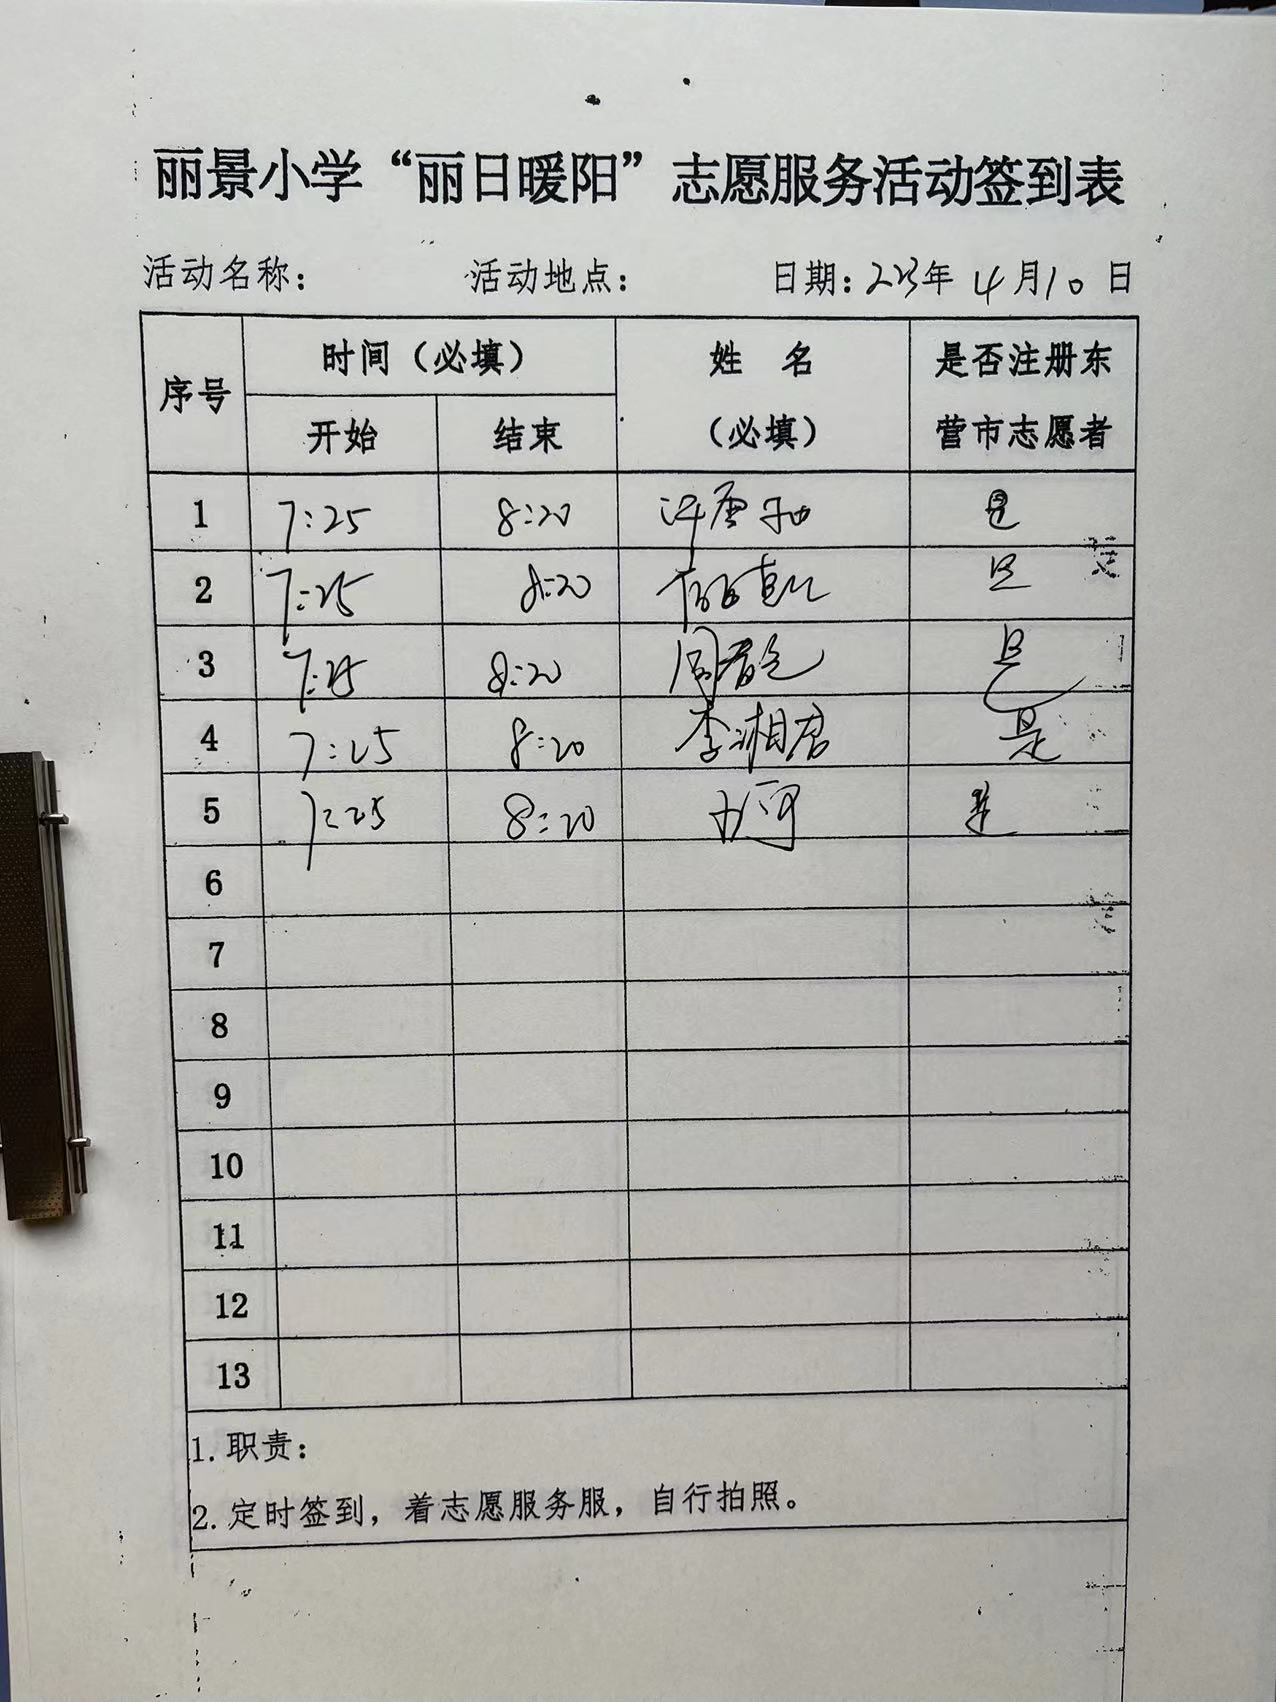 丽景小学“丽日暖阳”志愿服务活动签到表
活动名称： 活动地点： 日期：23年4月10日
序号 时间（必填） 姓 名（必填） 是否注册东营市志愿者
开始 结束
1 7:25 8:20 是
2 7:25 8:20 是
3 7:25 8:20 是
4 7:25 8:20 李湘君 是
5 7:25 8:20 是
6
7
8
9
10
11
12
13
1.职责：
2.定时签到，着志愿服务服，自行拍照。